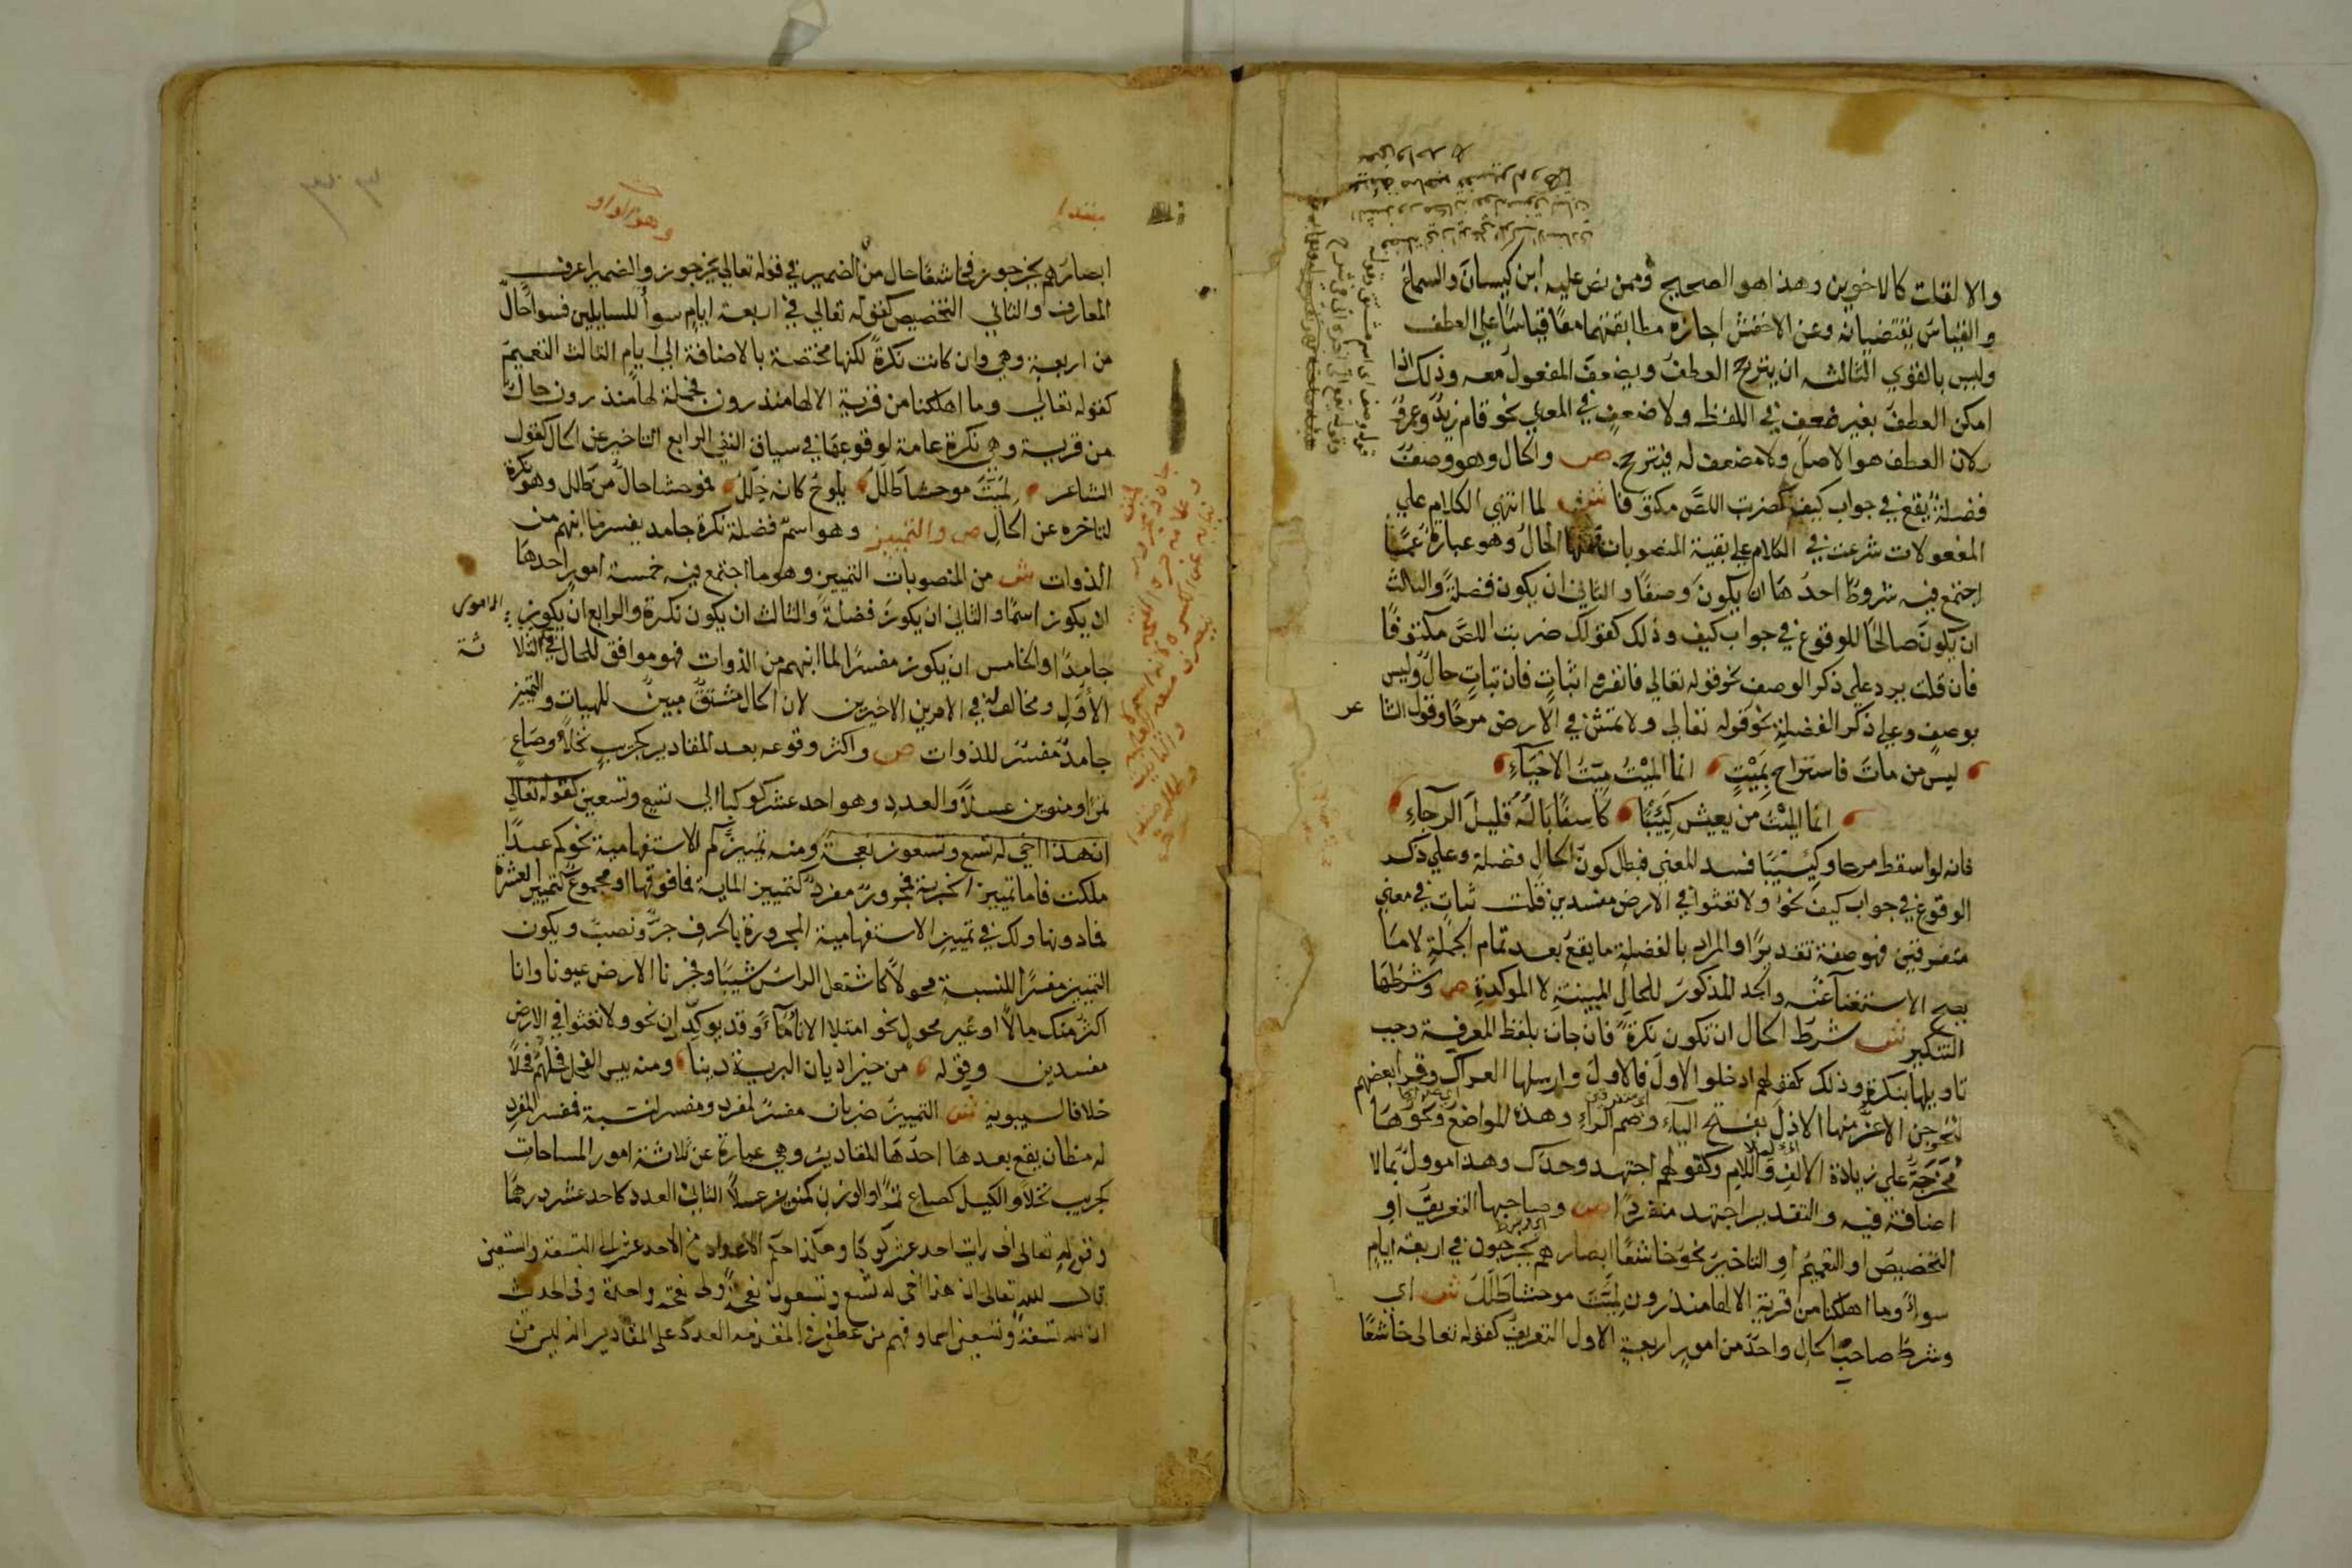 والا لقلت كالاخوين وهذا هو الصحيح وممن نص عليه ابن كيسان والسماع
والقياس يقتضيانه وعن الاخفش اجازة مطابقتهما معًا قياسًا علي العطف
وليس بالقوي الثالثه ان يترجح العطف ويضعف المفعول معه وذلك اذا
امكن العطف بغير ضعف في اللفظ ولا ضعف في المعني نحو قام زيد وعمرو
لان العطف هو الاصل ولا مضعف له فيترجح ص والحال وهو وصف
فضلة يقع في جواب كيف كضربت اللص مكتوفا ش لما انتهي الكلام علي
المفعولات شرعت في الكلام علي بقية المنصوبات فمنها الحال وهو عبارة عما
اجتمع فيه شروط احدها ان يكون وصفًا والثاني ان يكون فضلة والثالث
ان يكون صالحًا للوقوع في جواب كيف وذلك كقولك ضربت اللص مكتوفًا
فان قلت يرد علي ذكر الوصف نحو قوله تعالي فانفروا ثبات فان ثبات حال وليس
بوصف وعلي ذكر الفضلة نحو قوله تعالي ولا تمش في الارض مرحًا وقول الشا عر
ليس من مات فاستراح بميت انما الميت ميت الاحياء
انما الميت من يعيش كئيبًا كاسفًا باله قليل الرجاء
فانه لو اسقط مرحا وكئيبًا فسد المعني فبطل كون الحال فضلة وعلي ذكر
الوقوع في جواب كيف نحو ولا تعثوا في الارض مفسدين قلت ثبات في معني
متفرقين فهو صفة تقديرًا والمراد بالفضلة ما يقع بعد تمام الجملة لا ما
يصح الاستغناء عنه والحد المذكور للحال المبينة لا الموكدة ص وشرطها
التنكير ش شرط الحال ان تكون نكرة فان جات بلفظ المعرفة وجب
تاويلها بنكرة وذلك كقولهم ادخلوا الاول فالاول وارسلها العراك وقرا بعضهم
ليخرجن الاعز منها الاذل بفتح الياء وضم الراء وهذه المواضع ونحوها
مخرجة علي زيادة الالف واللام وكقولهم اجتهد وحدك وهذا موول بمالا
اضافة فيه والتقدير اجتهد منفردًا ص وصاحبها التعريف او
التخصيص او التعميم او التاخير نحو خاشعًا ابصارهم يخرجون في اربعة ايام
سواء وما اهلكنا من قرية الا لها منذرون لمية موحشا طلل ش اي
وشرط صاحب الحال واحد من امور اربعة الاول التعريف كقوله تعالى خاشعًا
ابصارهم يخرجون فخاشعًا حال من الضمير في قوله تعالي يخرجون والضمير اعرف
المعارف والثاني التخصيص كقوله تعالي في اربعة ايام سوأ للسايلين فسوا حال
من اربعة وهي وان كانت نكرة لكنها مختصة بالاضافة الي ايام الثالث التعميم
كقوله تعالي وما اهلكنا من قرية الا لها منذرون فجملة لها منذرون حال
من قرية وهي نكرة عامة لوقوعها في سياق النفي الرابع التاخير عن الحال كقول
الشاعر لمية موحشا طلل يلوح كانه خلل فموحشا حال من طلل وهو نكرة
لتاخره عن الحال ص والتمييز وهو اسم فضلة نكرة جامد يفسر ما انبهم من
الذوات ش من المنصوبات التمييز وهو ما اجتمع فيه خمسة امور احدها
ان يكون اسمًا والثاني ان يكون فضلة والثالث ان يكون نكرة والرابع ان يكون
جامدًا والخامس ان يكون مفسرًا لما انبهم من الذوات فهو موافق للحال في الثلا ثة
الأول ومخالف له في الامرين الاخيرين لان الحال مشتق مبين للهيات والتمييز
جامد مفسر للذوات ص واكثر وقوعه بعد المقادير كجريب نخلًا وصاع
تمرًا ومنوين عسلًا والعدد وهو احد عشر كوكبا الي تسع وتسعين كقوله تعالي
ان هذا اخي له تسع وتسعون نعجة ومنه تمييز كم الاستفهامية نحو كم عبدًا
ملكت فاما تمييز الخبرية فمجرور مفرد كتمييز الماية فما فوقها او مجموع كتمييز العشرة
فما دونها ولك في تمييز الاستفهامية المجرورة بالحرف جر ونصب ويكون
التمييز مفسرًا للنسبة محولًا كاشتعل الراس شيبًا وفجرنا الارض عيونا وانا
اكثر منك مالًا او غير محول نحو امتلا الاناء ماء وقد يوكدان نحو ولا تعثوا في الارض
مفسدين وقوله من خير اديان البرية دينا ومنه بيس الفحل فحلهم فحلًا
خلافا لسيبويه ش التمييز ضربان مفسر لمفرد ومفسر لنسبة فمفسر المفرد
له مظان يقع بعدها احدها المقادير وهي عبارة عن ثلاثة امور المساحات
كجريب نخلًا والكيل كصاع تمرًا والوزن كمنوين عسلًا الثاني العدد كاحد عشر درهمًا
وقوله تعالى اني رايت احد عشر كوكبًا وهكذا حكم الاعداد من الاحد عشر الي التسعة والتسعين
قال الله تعالى ان هذا اخي له تسع وتسعون نعجة ولي نعجة واحدة وفي الحديث
ان لله تسعة وتسعين اسما وفهم من عطفي في المقدمة العدد على المقادير انه ليس من